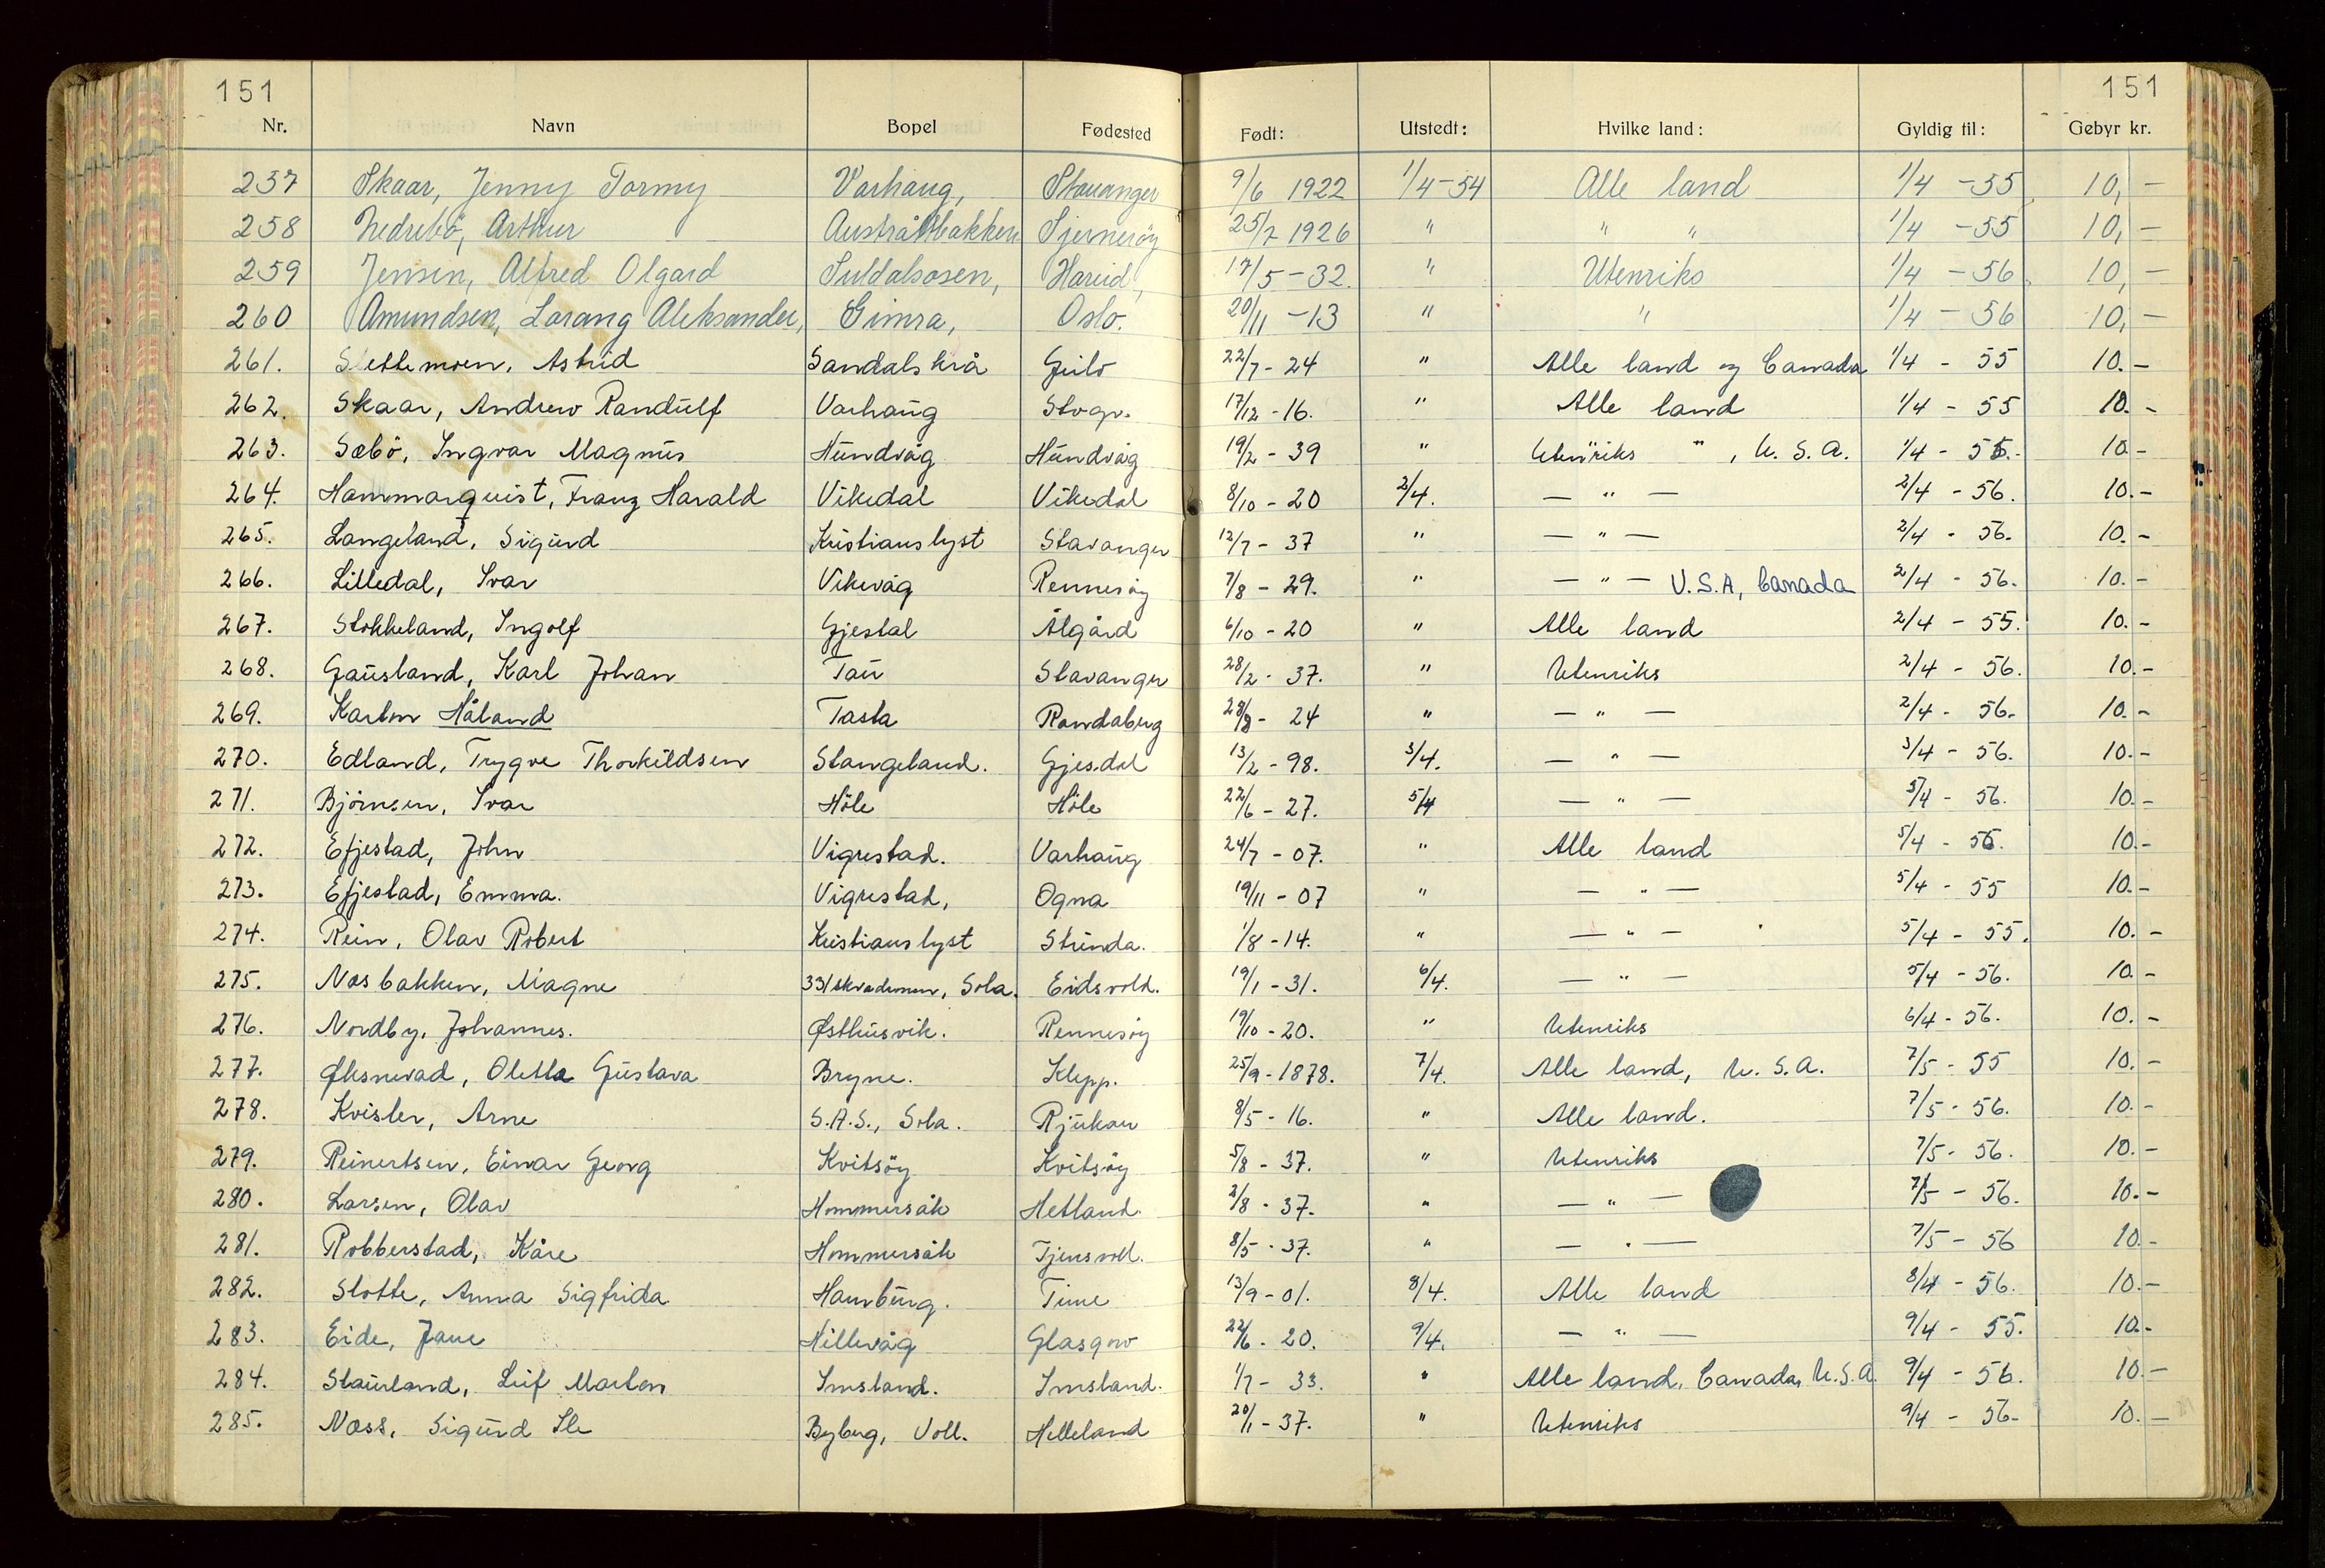 151 151
Nr. Navn Bopel Fødested Født: Utstedt: Hvilke land: Gyldig til: Gebyr kr.
237 Skaar, Jenny Tormy Varhaug, Stavanger 9/6 1922 1/4-54 Alle land 1/4 - 55 10,-
258 Nedrebö, Arthur Austråttbakken Sjerneröy 25/7 1926 " " " 1/4 - 55 10,-
259 Jensen, Alfred Olgard Suldalsosen, Hareid, 17/5 - 32. " Utenriks 1/4 - 56. 10,-
260 Amundsen, Lorang Aleksander, Gimra, Oslo. 20/11 - 13 " " 1/4 - 56 10,-
261. Slettemoen, Astrid Sandalskrå Geilo 22/7 - 24 " Alle land og Canada 1/4 - 55 10.-
262. Skaar, Andrew Randulf Varhaug Stvgr. 17/12 - 16. " Alle land 1/4 - 55 10.-
263. Sæbö, Ingvar Magnus Hundvåg Hundvåg 19/2 - 39 " Utenriks " , U.S.A. 1/4 - 55.- 10.-
264. Hammarquist, Franz Harald Vikedal Vikedal 8/10 - 20 2/4. — " — 2/4 - 56. 10.-
265. Langeland, Sigurd Kristianslyst Stavanger 12/7 - 37 " — " — 2/4 - 56. 10.-
266. Lilledal, Ivar Vikevåg Rennesöy 7/8 - 29. " — " — U.S.A, Canada 2/4 - 56. 10.-
267. Stokkeland, Ingolf Gjestal Ålgård 6/10 - 20 " Alle land 2/4 - 55. 10.-
268. Gausland, Karl Johan Tau Stavanger 28/2 - 37. " Utenriks 2/4 - 56. 10.-
269. Karten Håland Tasta Randaberg 28/8 - 24 " — " — 2/4 - 56. 10.-
270. Edland, Trygve Thorkildsen Stangeland. Gjesdal 13/2 - 98. 3/4. — " — 3/4 - 56. 10.-
271. Björnsen, Ivar Höle Höle 22/6 - 27. 5/4 — " — 5/4 - 56. 10.-
272. Efjestad, John Vigrestad. Varhaug 24/7 - 07. " Alle land 5/4 - 56. 10.-
273. Efjestad, Emma. Vigrestad, Ogna 19/11 - 07 " — " — 5/4 - 55 10.-
274. Rein, Olav Robert Kristianslyst Strinda. 1/8 - 14. " — " — 5/4 - 55. 10.-
275. Næsbakken, Magne 331 skvadronen, Sola. Eidsvold. 19/1 - 31. 6/4. — " — 5/4 - 56. 10.-
276. Nordby, Johannes. Østhusvik. Rennesöy 19/10 - 20. " Utenriks 6/4 - 56. 10.-
277. Øksnevad, Oletta Gustava Bryne. Klepp. 25/9 - 1878. 7/4. Alle land, U.S.A. 7/5 - 55 10.-
278. Kvisler, Arne S.A.S., Sola. Rjukan 8/5 - 16. " Alle land. 7/5 - 56. 10.-
279. Reinertsen, Einar Georg Kvitsöy Kvitsöy 5/8 - 37. " Utenriks 7/5 - 56. 10.-
280. Larsen, Olav Hommersåk Hetland. 2/8 - 37. " — " — 7/5 - 56. 10.-
281. Robberstad, Kåre Hommersåk Tjensvoll. 8/5 - 37. " — " — 7/5 - 56 10.-
282. Slotte, Anna Sigfrida Hamburg. Time 13/9 - 01. 8/4. Alle land 8/4 - 56. 10.-
283. Eide, Jane Hillevåg Glasgow 22/6 - 20. 9/4. — " — 9/4 - 55. 10.-
284. Staurland, Leif Morten Imsland. Imsland. 1/7 - 33. " Alle land, Canada, U.S.A. 9/4 - 56. 10.-
285. Næss, Sigurd Ile Byberg, Voll. Helleland 20/1 - 37. " Utenriks 9/4 - 56- 10.-